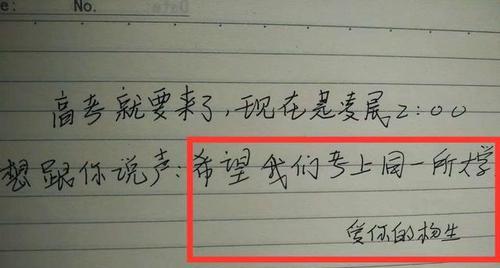 e: No.
高考就要来了,现在是凌晨2:00
想跟你说声:希望我们考上同一所大学
爱你的杨生